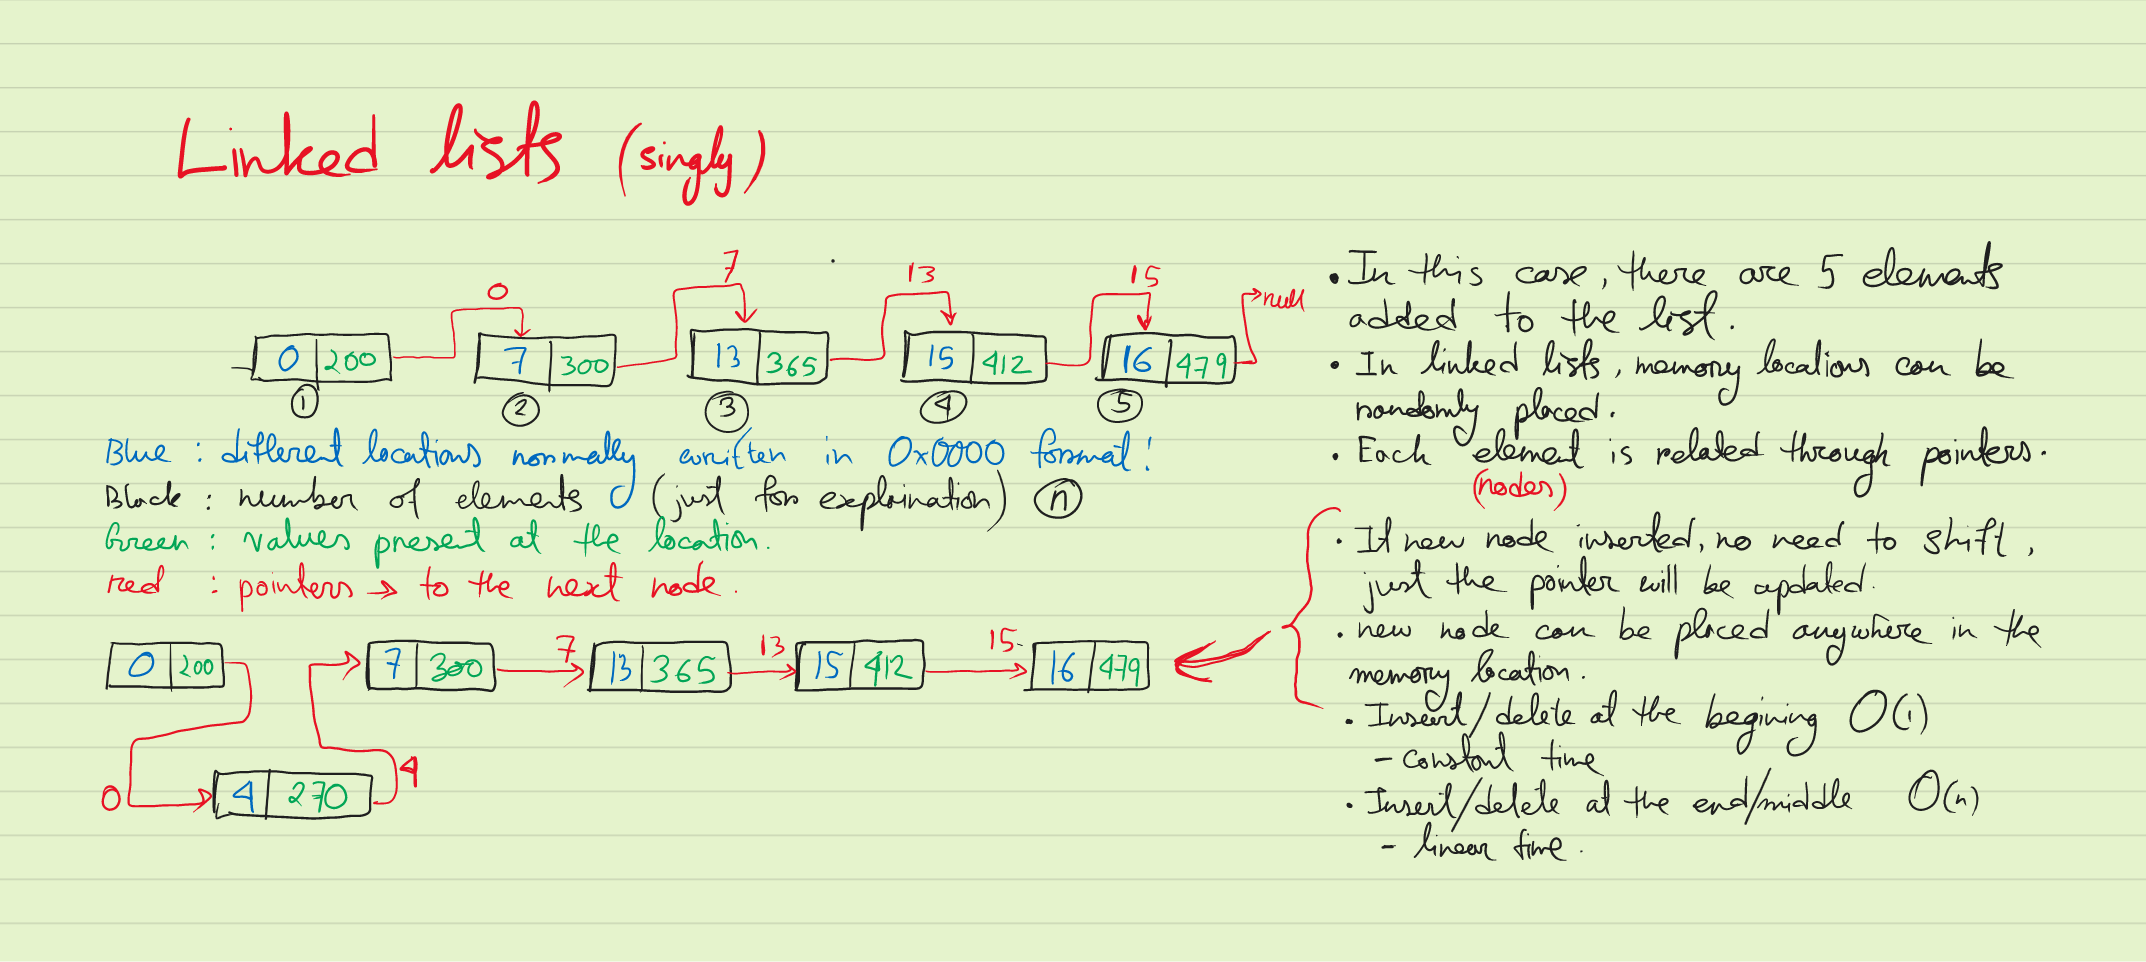 Linked lists (singly)
0 7 13 15 null
0 200 7 300 13 365 15 412 16 479
1 2 3 4 5
Blue : different locations normally written in 0x0000 format!
Black : number of elements (just for explaination) n
Green : values present at the location.
red : pointers → to the next node.
7 13 15
0 200 7 300 13 365 15 412 16 479
0 4 270 4
• In this case, there are 5 elements
added to the list.
• In linked lists, memory locations can be
randomly placed.
• Each element is related through pointers.
(nodes)
• If new node inserted, no need to shift,
just the pointer will be updated.
• new node can be placed anywhere in the
memory location.
• Insert/delete at the begining O(1)
- constant time
• Insert/delete at the end/middle O(n)
- linear time.